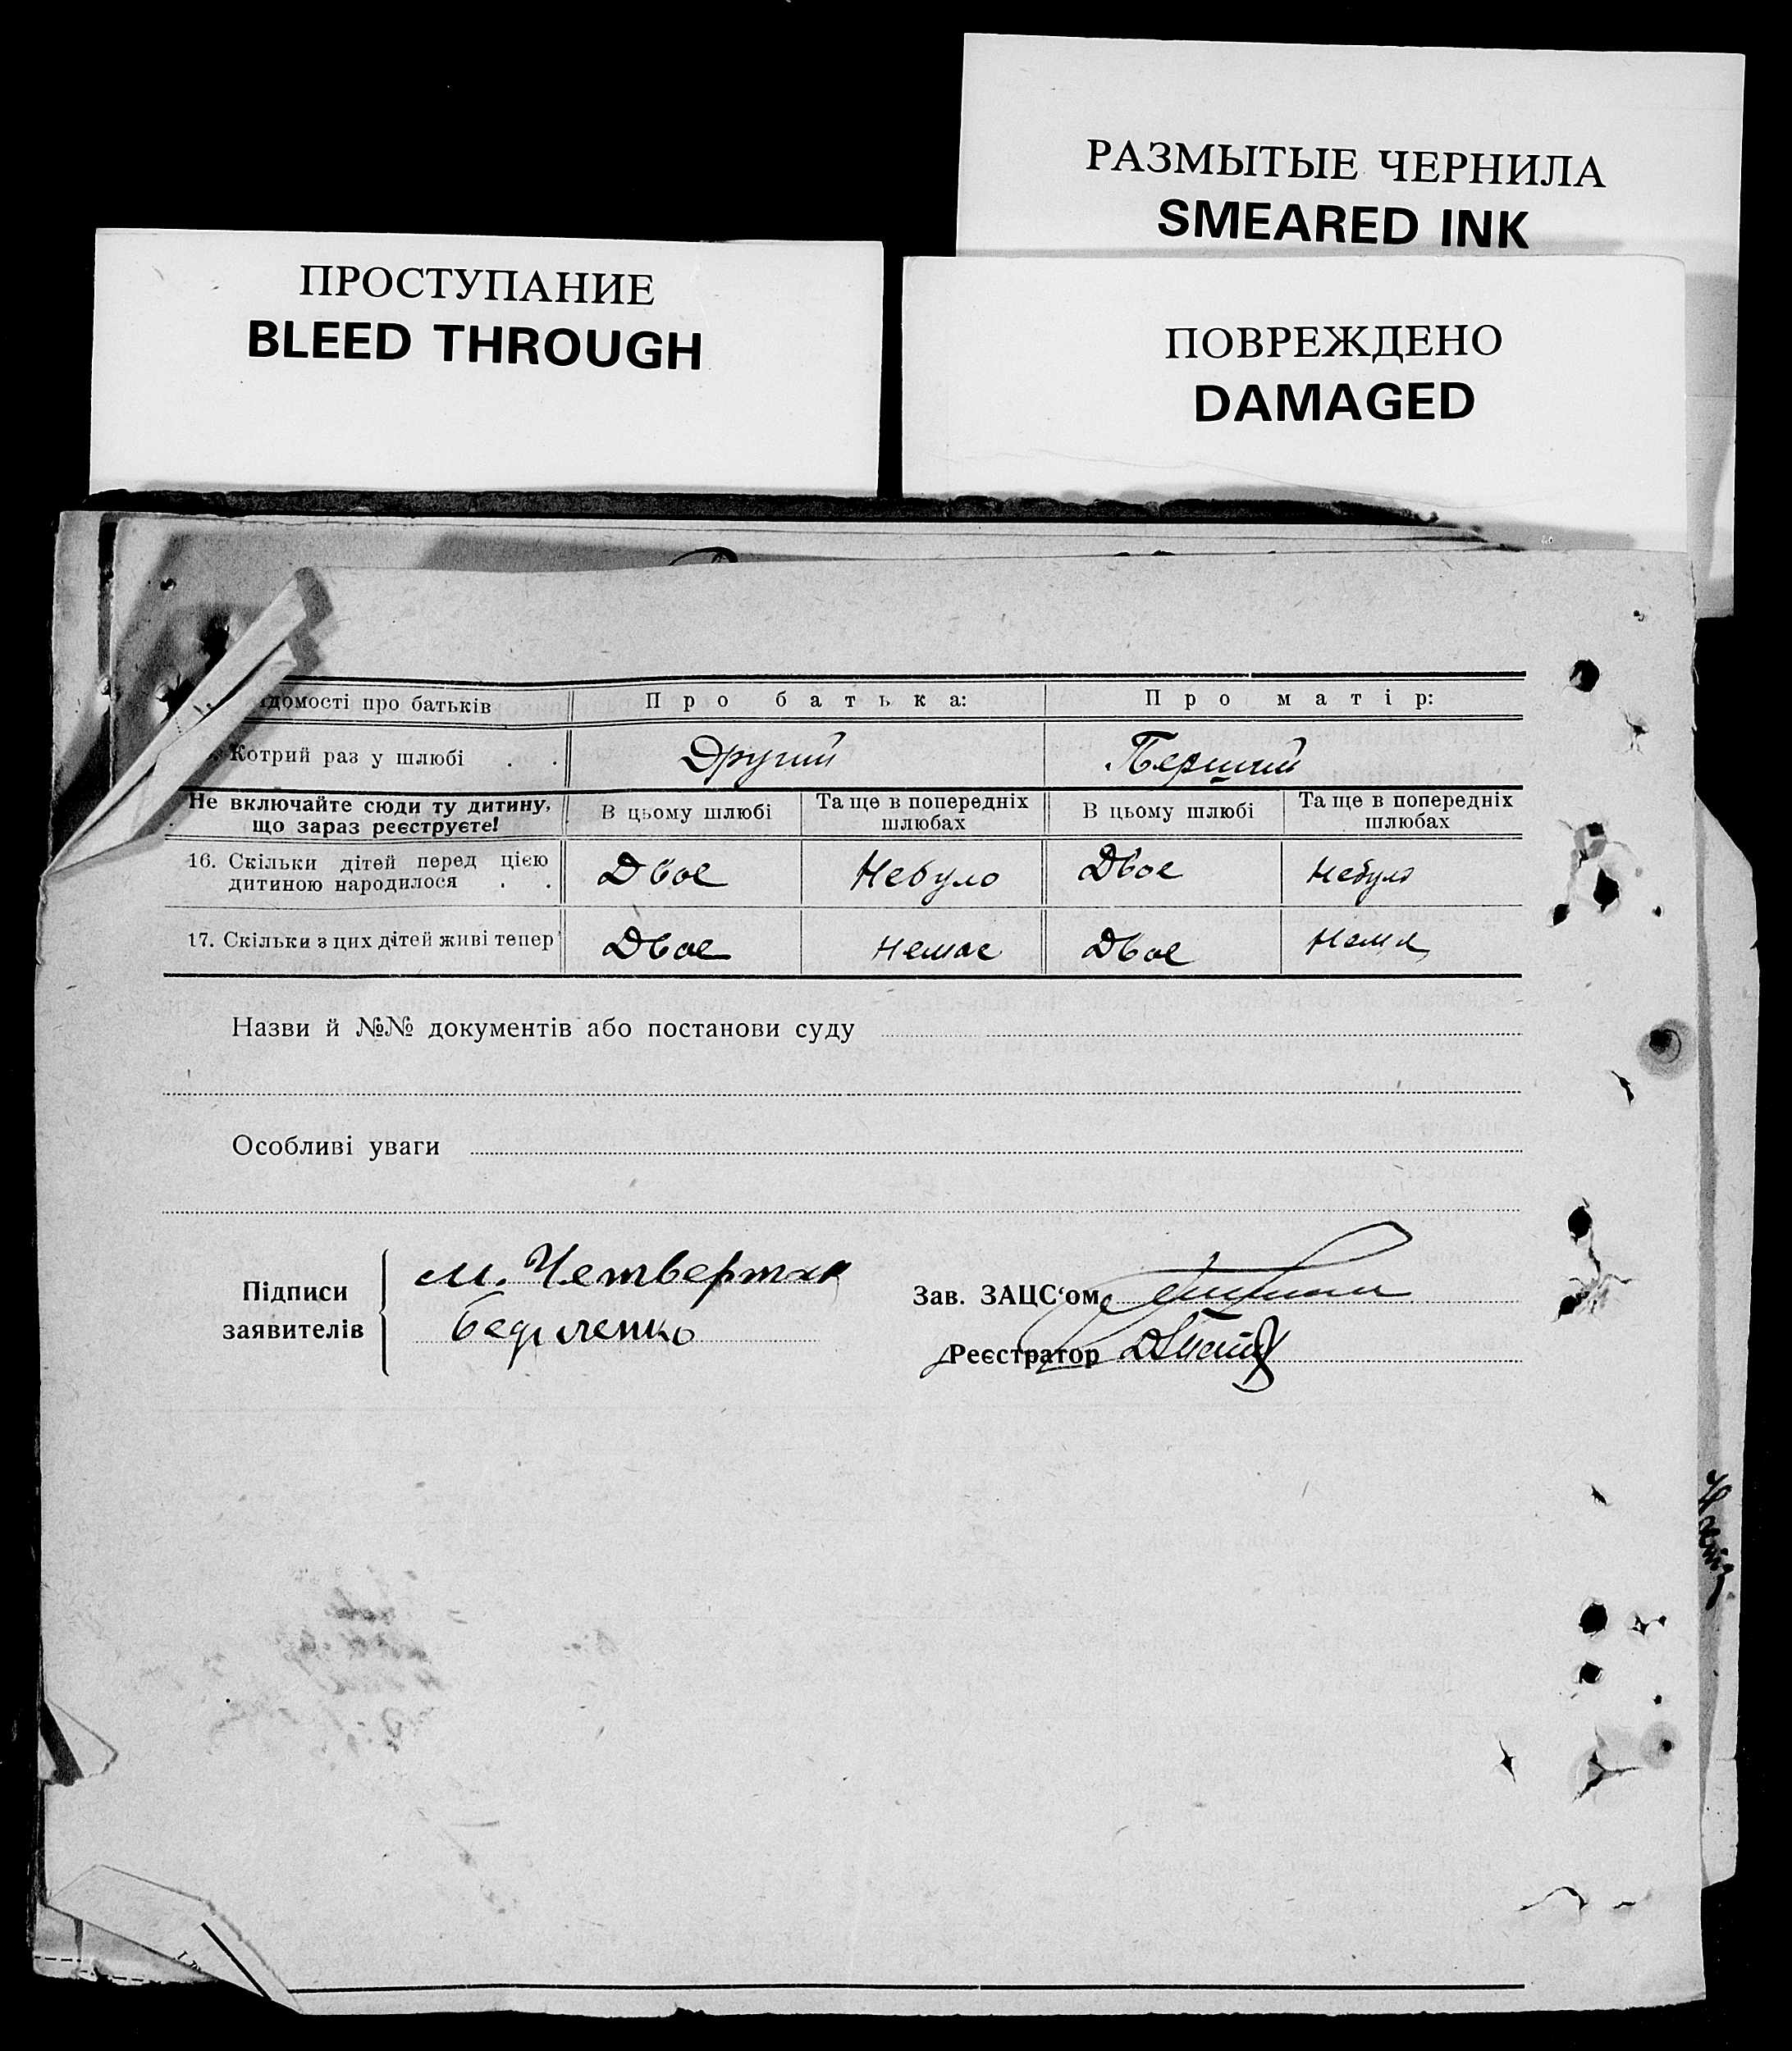 РАЗМЫТЫЕ ЧЕРНИЛА
SMEARED INK
ПРОСТУПАНИЕ
BLEED THROUGH
ПОВРЕЖДЕНО
DAMAGED
ідомості про батьків Про батька: Про матір:
Котрий раз у шлюбі . . Другий Перший
Не включайте сюди ту дитину, що зараз реєструєте! В цьому шлюбі Та ще в попередніх шлюбах В цьому шлюбі Та ще в попередніх шлюбах
16. Скільки дітей перед цією
дитиною народилося . . Двое Небуло Двое Небуло
17. Скільки з цих дітей живі тепер Двое немає Двое Нема
Назви й №№ документів або постанови суду
Особливі уваги
Підписи
заявителів
м. Четвертак
Зав. ЗАЦС'ом
Реєстратор